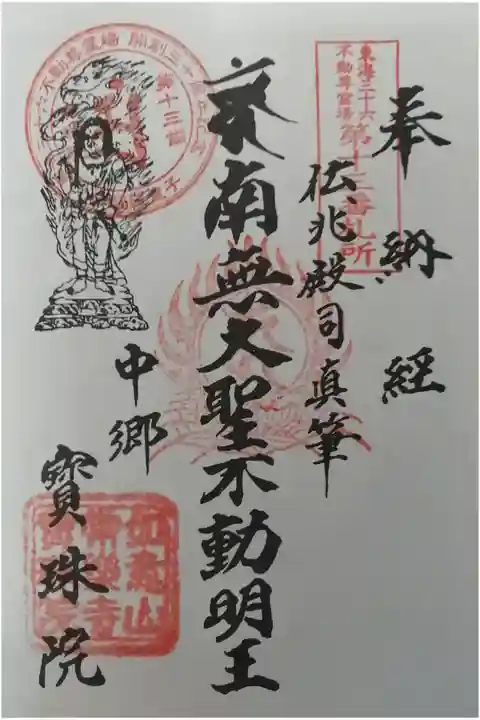 奉納経
東海三十六
不動尊霊場
第十三番札所
伝兆殿司真筆
南無大聖不動明王
第十三番
中郷
寳珠院